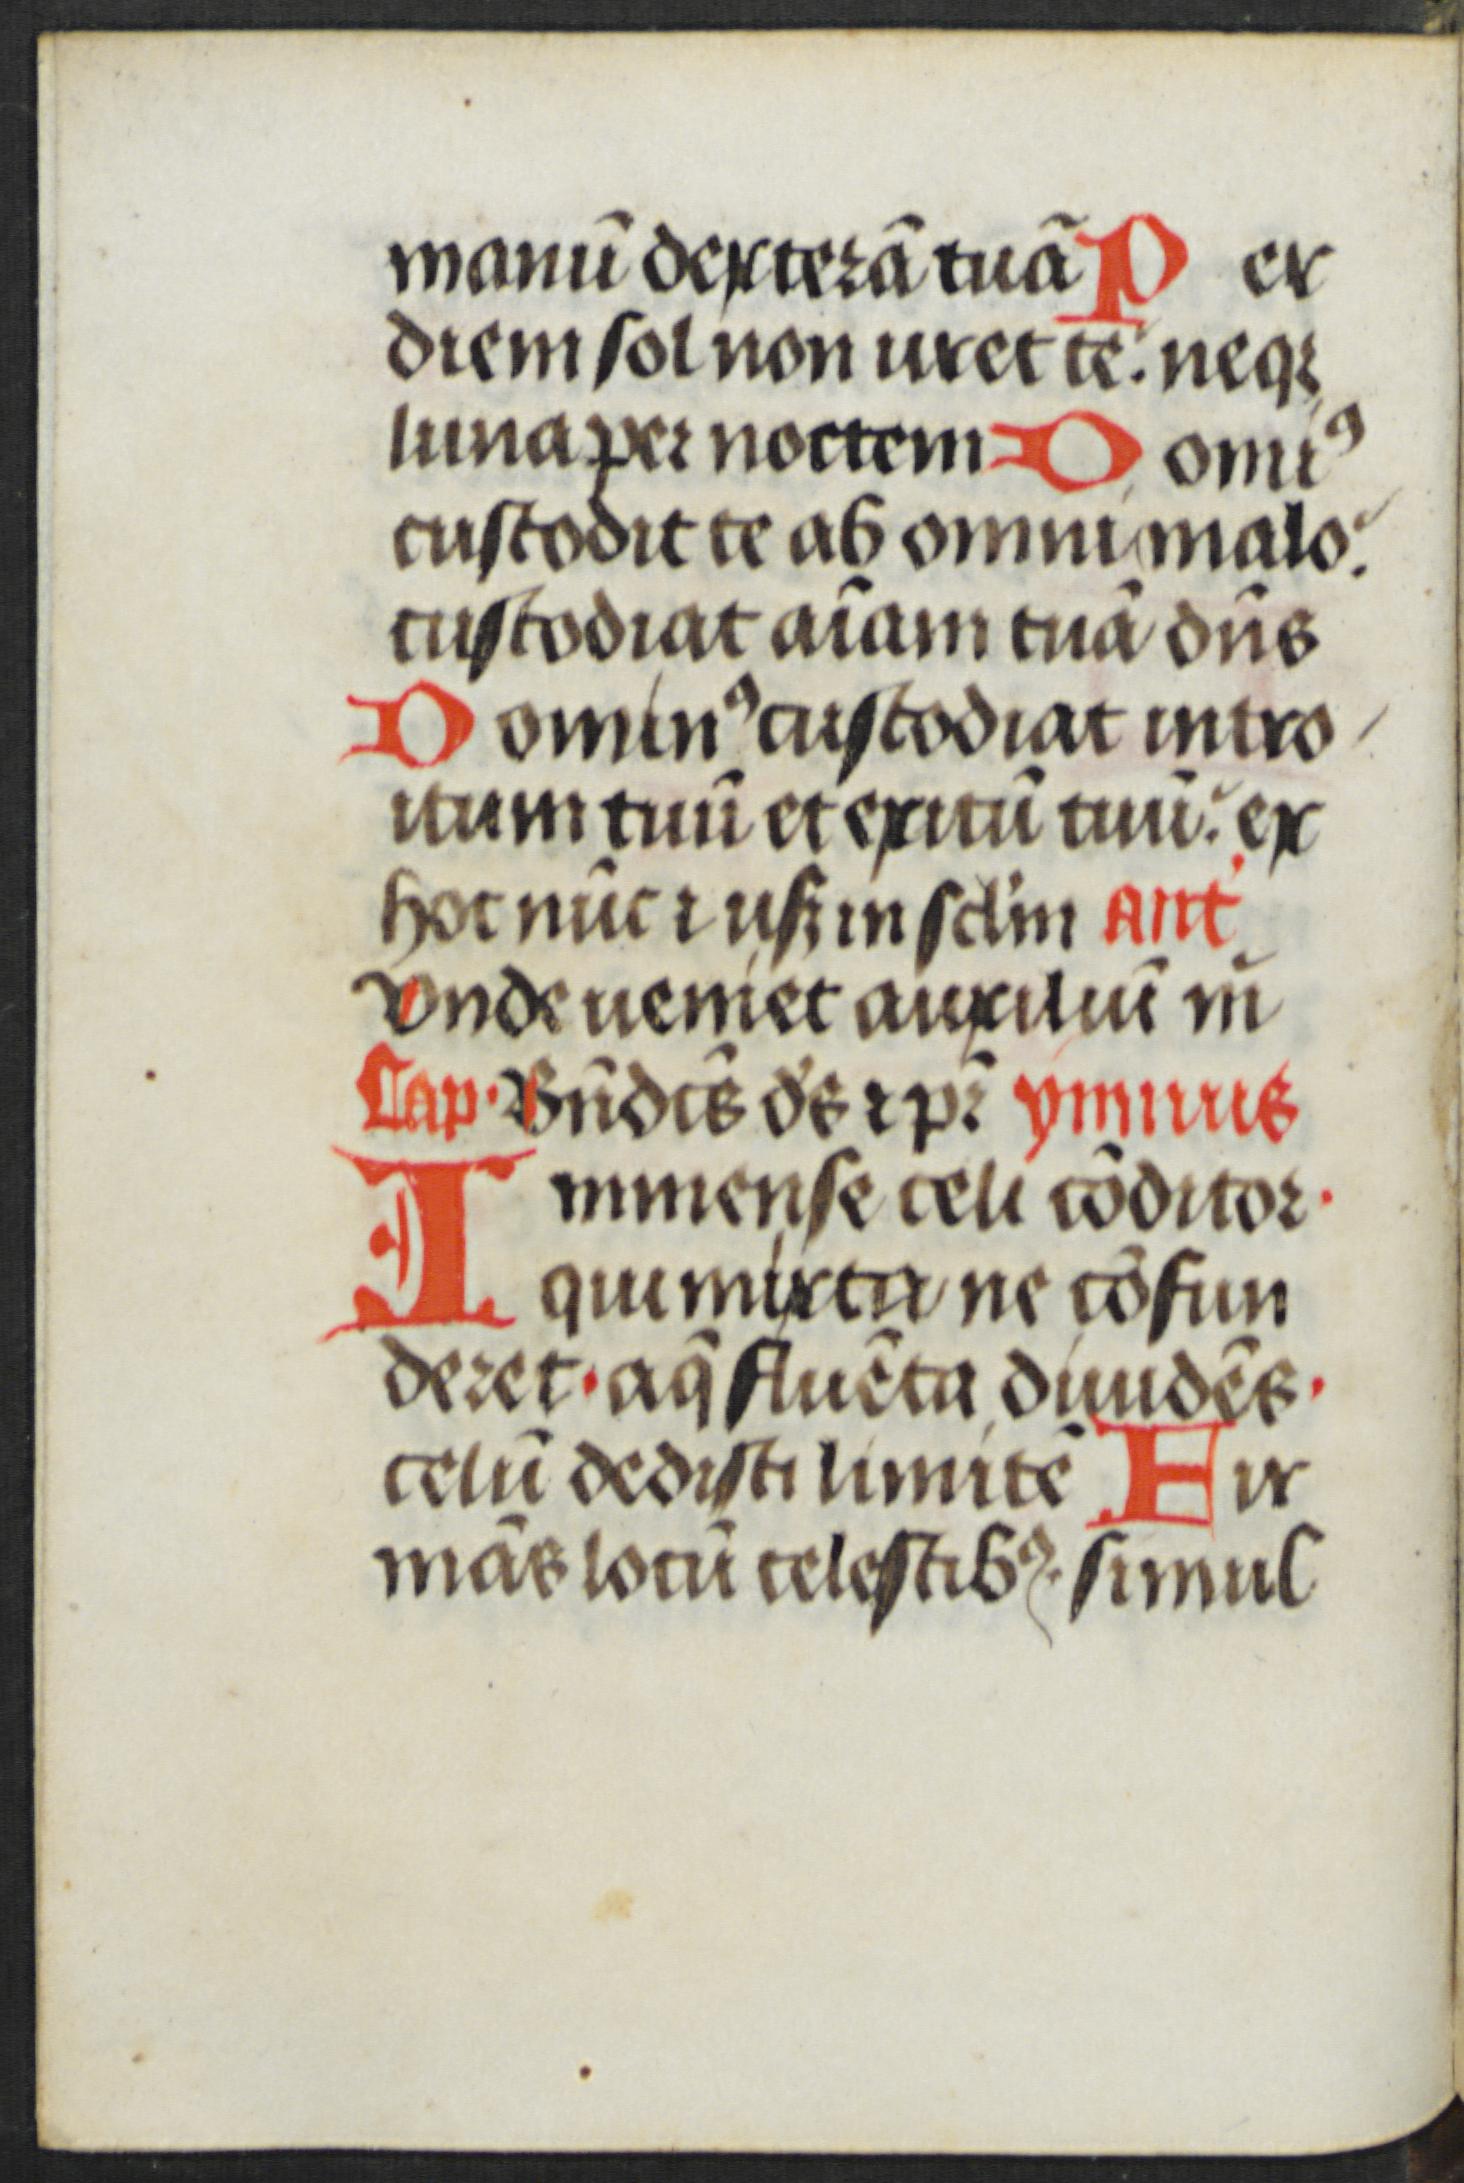 manū dexterā tuā P er
diem sol non uret te: neqꝫ
luna per noctem D omiꝰ
custodit te ab omni malo:
custodiat aīam tuā dn̄s
D ominꝰ custodiat intro
itum tuū et exitū tuū: ex
hoc nūc ⁊ usqꝫ in sclm̄ ant̄
Vnde ueniet auxiliūm m̄
Cap. Bn̄dc̄s d̄s ⁊ pr̄ ymnus
I mmense celi cōditor.
qui mixta ne cōfun
deret. aq̄ fluēta diuidēs.
celū dedisti limitē F ir
māns locū celestibꝰ. simul